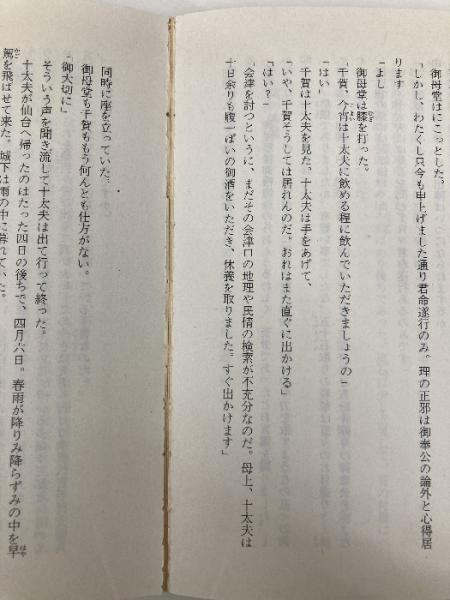 御母堂はにこっとした。
「しかし、わたくし只今も申上げました通り君命遂行のみ。理の正邪は御奉公の論外と心得居
ります」
「よし」
御母堂は膝を打った。
「千賀、今宵は十太夫に飲める程に飲んでいただきましょうの」
「はい」
千賀は十太夫を見た。十太夫は手をあげて、
「いや、千賀そうしては居れんのだ。おれはまた直ぐに出かける」
「はい?」
「会津を討つというに、まだその会津口の地理や民情の検索が不充分なのだ。母上、十太夫は
十日余りも腹一ぱいの御酒をいただき、休養を取りました。すぐ出かけます」
同時に座を立っていた。
御母堂も千賀ももう何んとも仕方がない。
「御大切に」
そういう声を聞き流して十太夫は出て行って終った。
十太夫が仙台へ帰ったのはたった四日の後ちで、四月六日。春雨が降りみ降らずみの中を早
駕を飛ばせて来た。城下は雨の中に暮れていた。